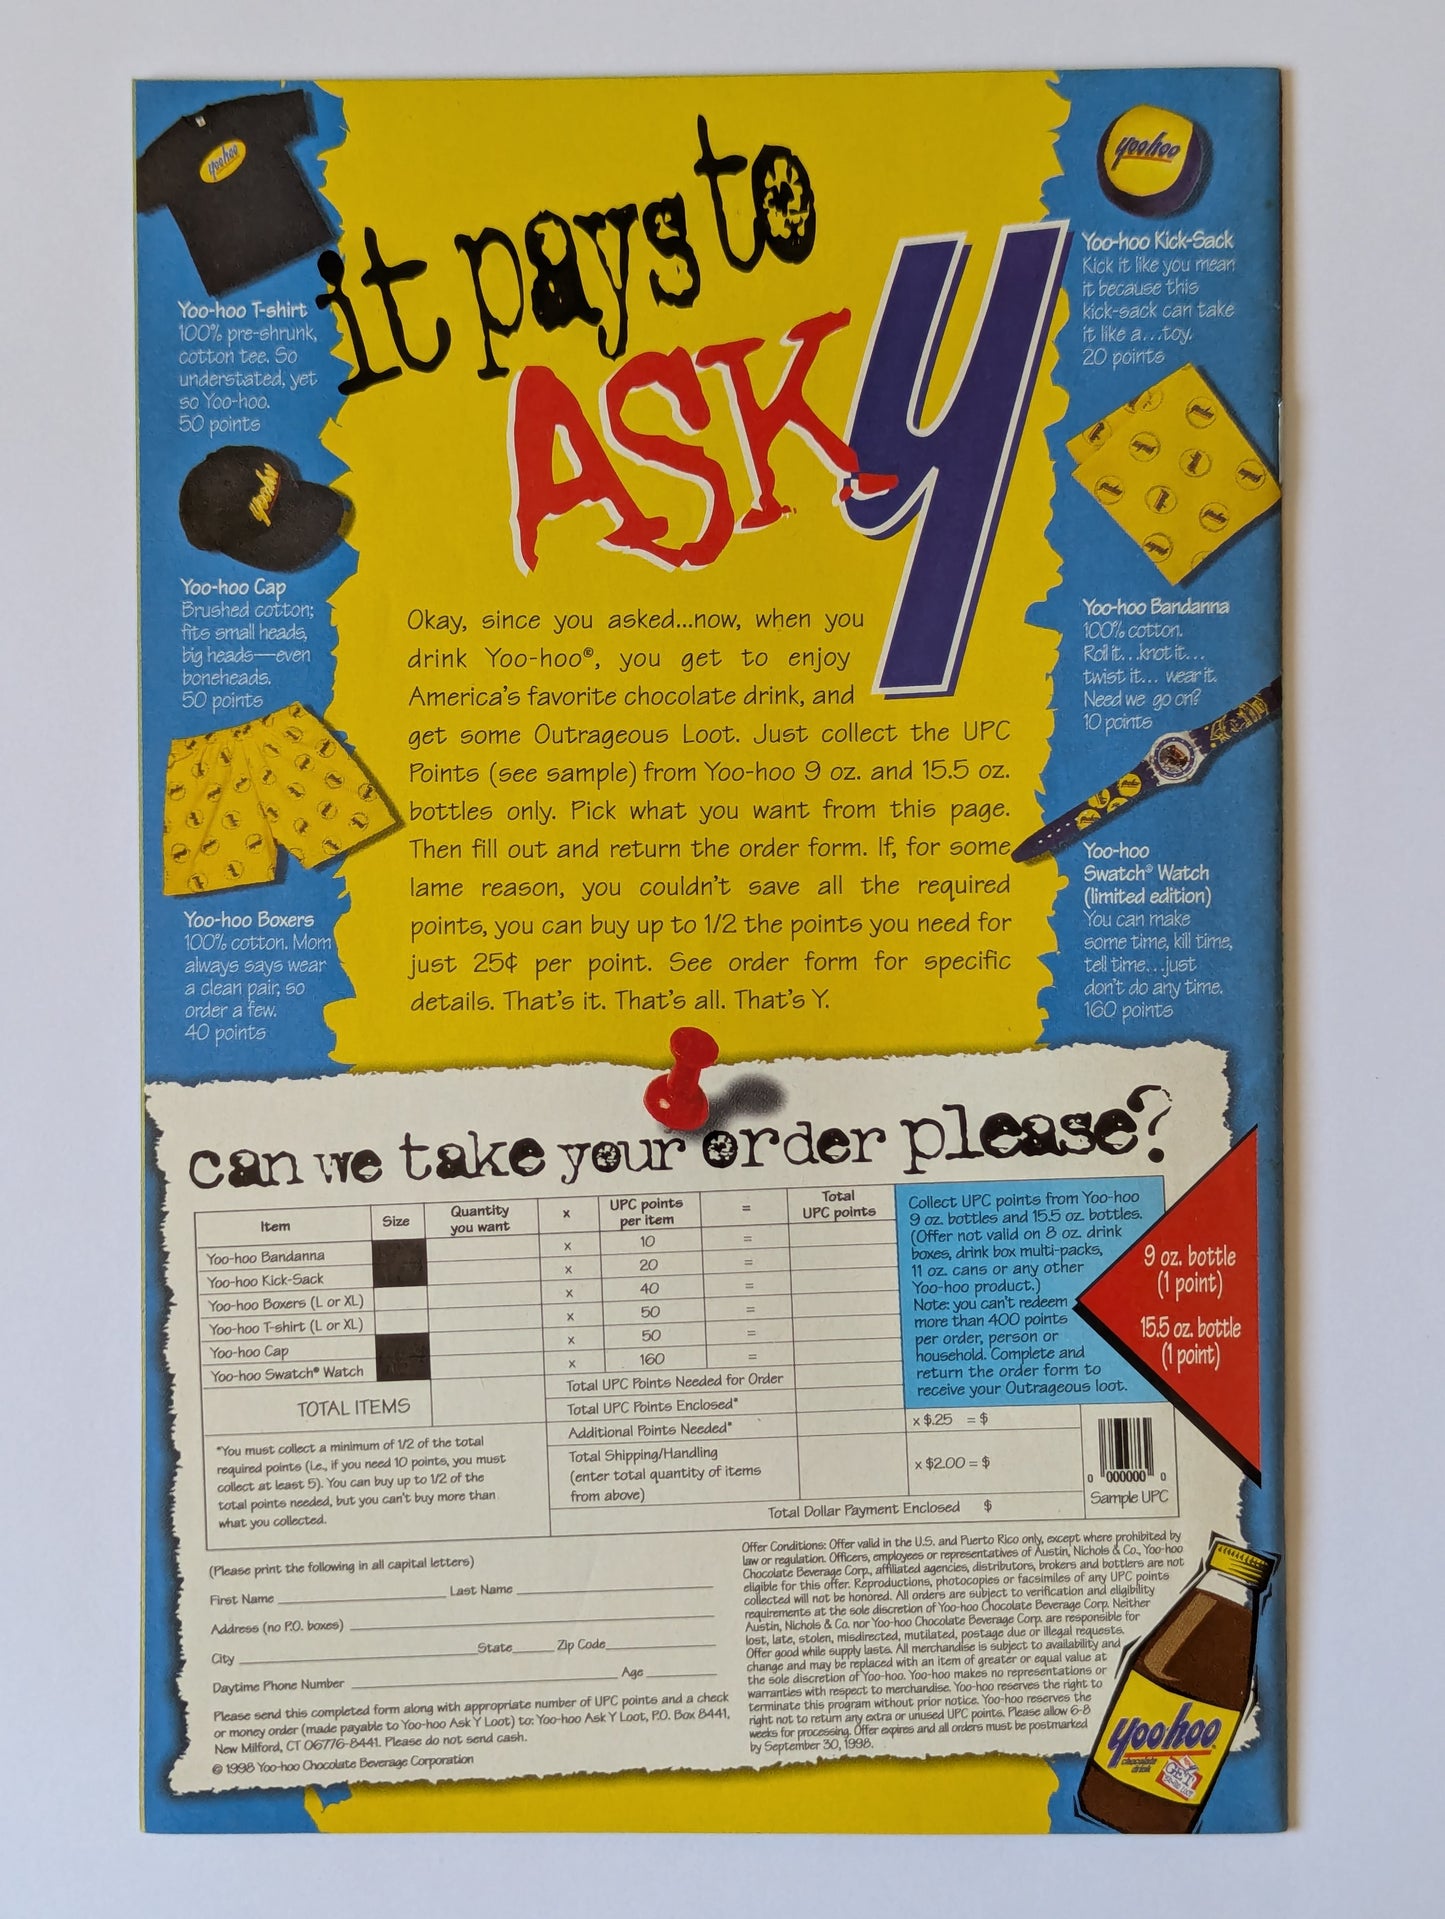 it pays to
ASK Y
yoohoo
Yoo-hoo T-shirt
100% pre-shrunk,
cotton tee. So
understated, yet
so Yoo-hoo.
50 points
yoohoo
Yoo-hoo Cap
Brushed cotton;
fits small heads,
big heads—even
boneheads.
50 points
Yoo-hoo Boxers
100% cotton. Mom
always says wear
a clean pair, so
order a few.
40 points
Okay, since you asked...now, when you
drink Yoo-hoo®, you get to enjoy
America's favorite chocolate drink, and
get some Outrageous Loot. Just collect the UPC
Points (see sample) from Yoo-hoo 9 oz. and 15.5 oz.
bottles only. Pick what you want from this page.
Then fill out and return the order form. If, for some
lame reason, you couldn't save all the required
points, you can buy up to 1/2 the points you need for
just 25¢ per point. See order form for specific
details. That's it. That's all. That's Y.
yoohoo
Yoo-hoo Kick-Sack
Kick it like you mean
it because this
kick-sack can take
it like a...toy.
20 points
Yoo-hoo Bandanna
100% cotton.
Roll it...knot it...
twist it... wear it.
Need we go on?
10 points
Yoo-hoo
Swatch® Watch
(limited edition)
You can make
some time, kill time,
tell time...just
don't do any time.
160 points
can we take your order please?
Item Size Quantity you want x UPC points per item = Total UPC points
Yoo-hoo Bandanna x 10 =
Yoo-hoo Kick-Sack x 20 =
Yoo-hoo Boxers (L or XL) x 40 =
Yoo-hoo T-shirt (L or XL) x 50 =
Yoo-hoo Cap x 50 =
Yoo-hoo Swatch® Watch x 160 =
TOTAL ITEMS
Total UPC Points Needed for Order
Total UPC Points Enclosed*
Additional Points Needed* x $.25 = $
Total Shipping/Handling
(enter total quantity of items
from above)
x $2.00 = $
Total Dollar Payment Enclosed $
*You must collect a minimum of 1/2 of the total
required points (i.e., if you need 10 points, you must
collect at least 5). You can buy up to 1/2 of the
total points needed, but you can't buy more than
what you collected.
Collect UPC points from Yoo-hoo
9 oz. bottles and 15.5 oz. bottles.
(Offer not valid on 8 oz. drink
boxes, drink box multi-packs,
11 oz. cans or any other
Yoo-hoo product.)
Note: you can't redeem
more than 400 points
per order, person or
household. Complete and
return the order form to
receive your Outrageous loot.
9 oz. bottle
(1 point)
15.5 oz. bottle
(1 point)
0 000000 0
Sample UPC
(Please print the following in all capital letters)
First Name Last Name
Address (no P.O. boxes)
City State Zip Code
Daytime Phone Number Age
Please send this completed form along with appropriate number of UPC points and a check
or money order (made payable to Yoo-hoo Ask Y Loot) to: Yoo-hoo Ask Y Loot, P.O. Box 8441,
New Milford, CT 06776-8441. Please do not send cash.
© 1998 Yoo-hoo Chocolate Beverage Corporation
Offer Conditions: Offer valid in the U.S. and Puerto Rico only, except where prohibited by
law or regulation. Officers, employees or representatives of Austin, Nichols & Co., Yoo-hoo
Chocolate Beverage Corp., affiliated agencies, distributors, brokers and bottlers are not
eligible for this offer. Reproductions, photocopies or facsimiles of any UPC points
collected will not be honored. All orders are subject to verification and eligibility
requirements at the sole discretion of Yoo-hoo Chocolate Beverage Corp. Neither
Austin, Nichols & Co. nor Yoo-hoo Chocolate Beverage Corp. are responsible for
lost, late, stolen, misdirected, mutilated, postage due or illegal requests.
Offer good while supply lasts. All merchandise is subject to availability and
change and may be replaced with an item of greater or equal value at
the sole discretion of Yoo-hoo. Yoo-hoo makes no representations or
warranties with respect to merchandise. Yoo-hoo reserves the right to
terminate this program without prior notice. Yoo-hoo reserves the
right not to return any extra or unused UPC points. Please allow 6-8
weeks for processing. Offer expires and all orders must be postmarked
by September 30, 1998.
yoohoo
chocolate
drink
GET